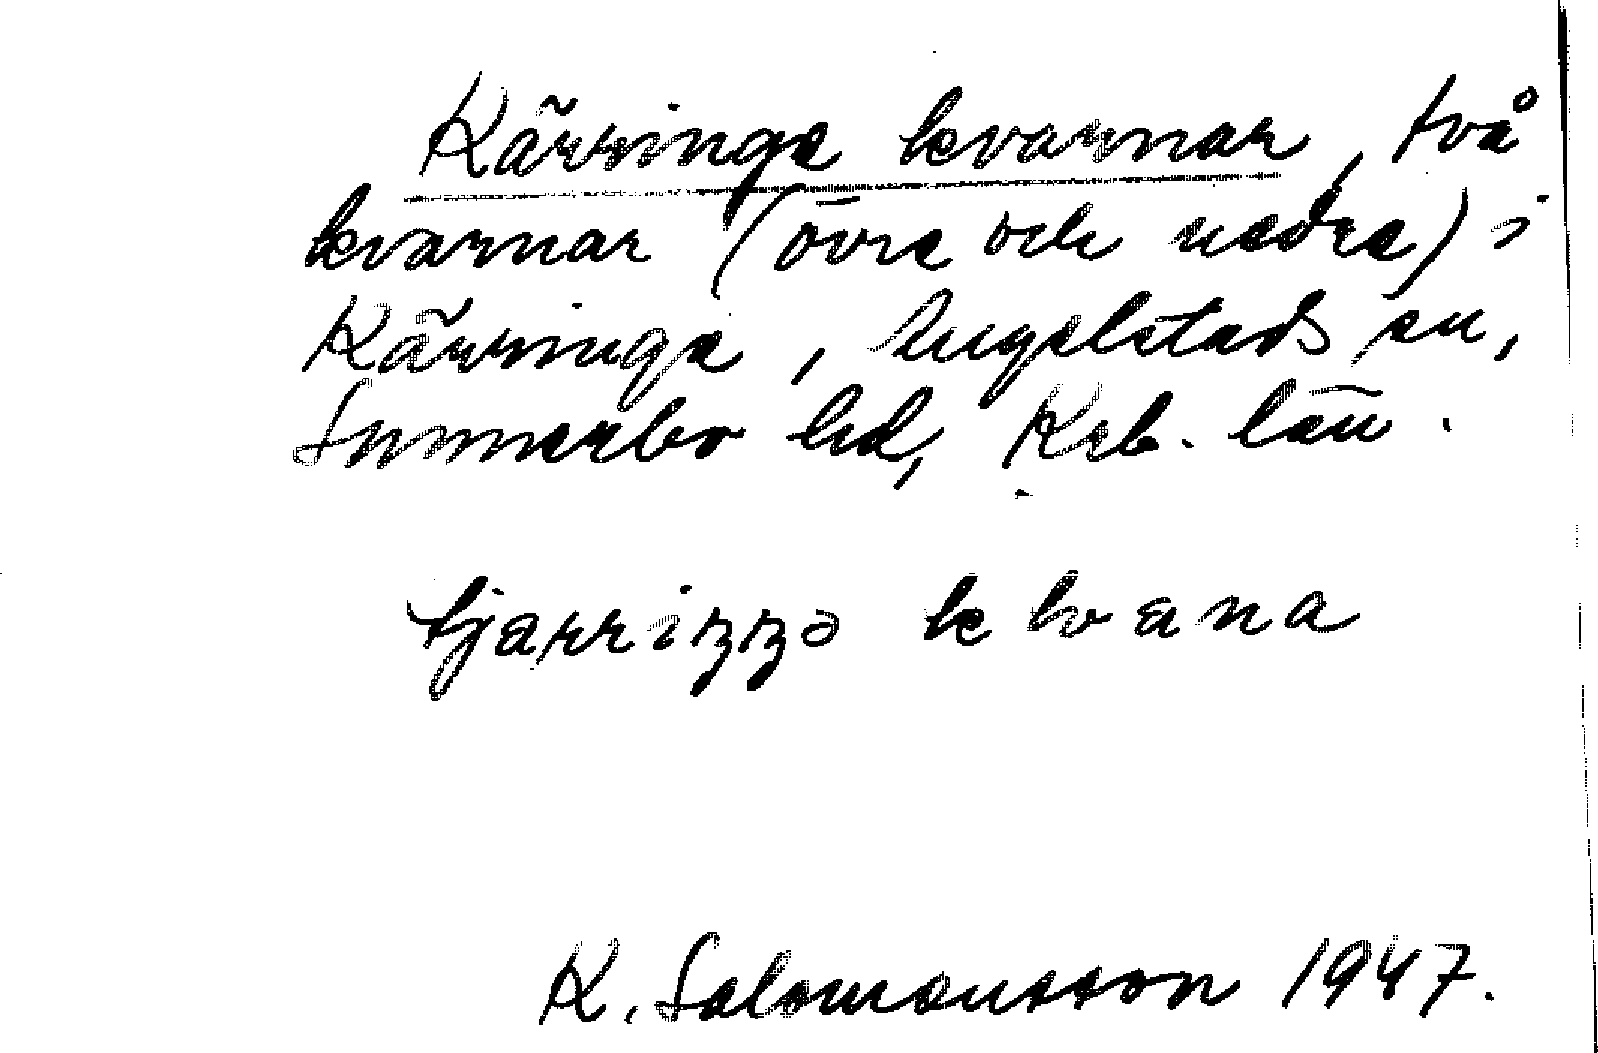 Kärringe kvarnar, två
kvarnar (övre och nedre) i
Kärringe, Angelstads sn,
Sunnerbo hd, Krb. län.
tjärriŋŋə kvana
K. Salomonsson 1947.